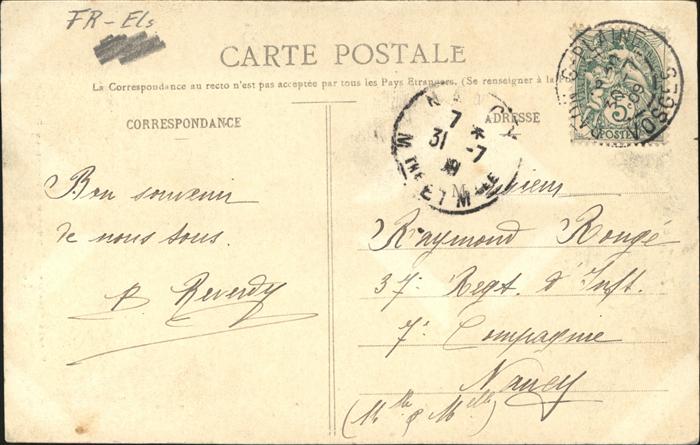 FR-Els
CARTE POSTALE
La Correspondance au recto n'est pas acceptée par tous les Pays Etrangers. (Se renseigner à la
CORRESPONDANCE
ADRESSE
NANCY
7 *
31 -7
09
MTHE ET MLLE
PLAINE
VOSGES
5
Bon souvenir
de nous tous.
P. Reverdy
M
Raymond Rougé
37e Regt. d'Inft.
7e Compagnie
Nancy
(Mthe & Melle)